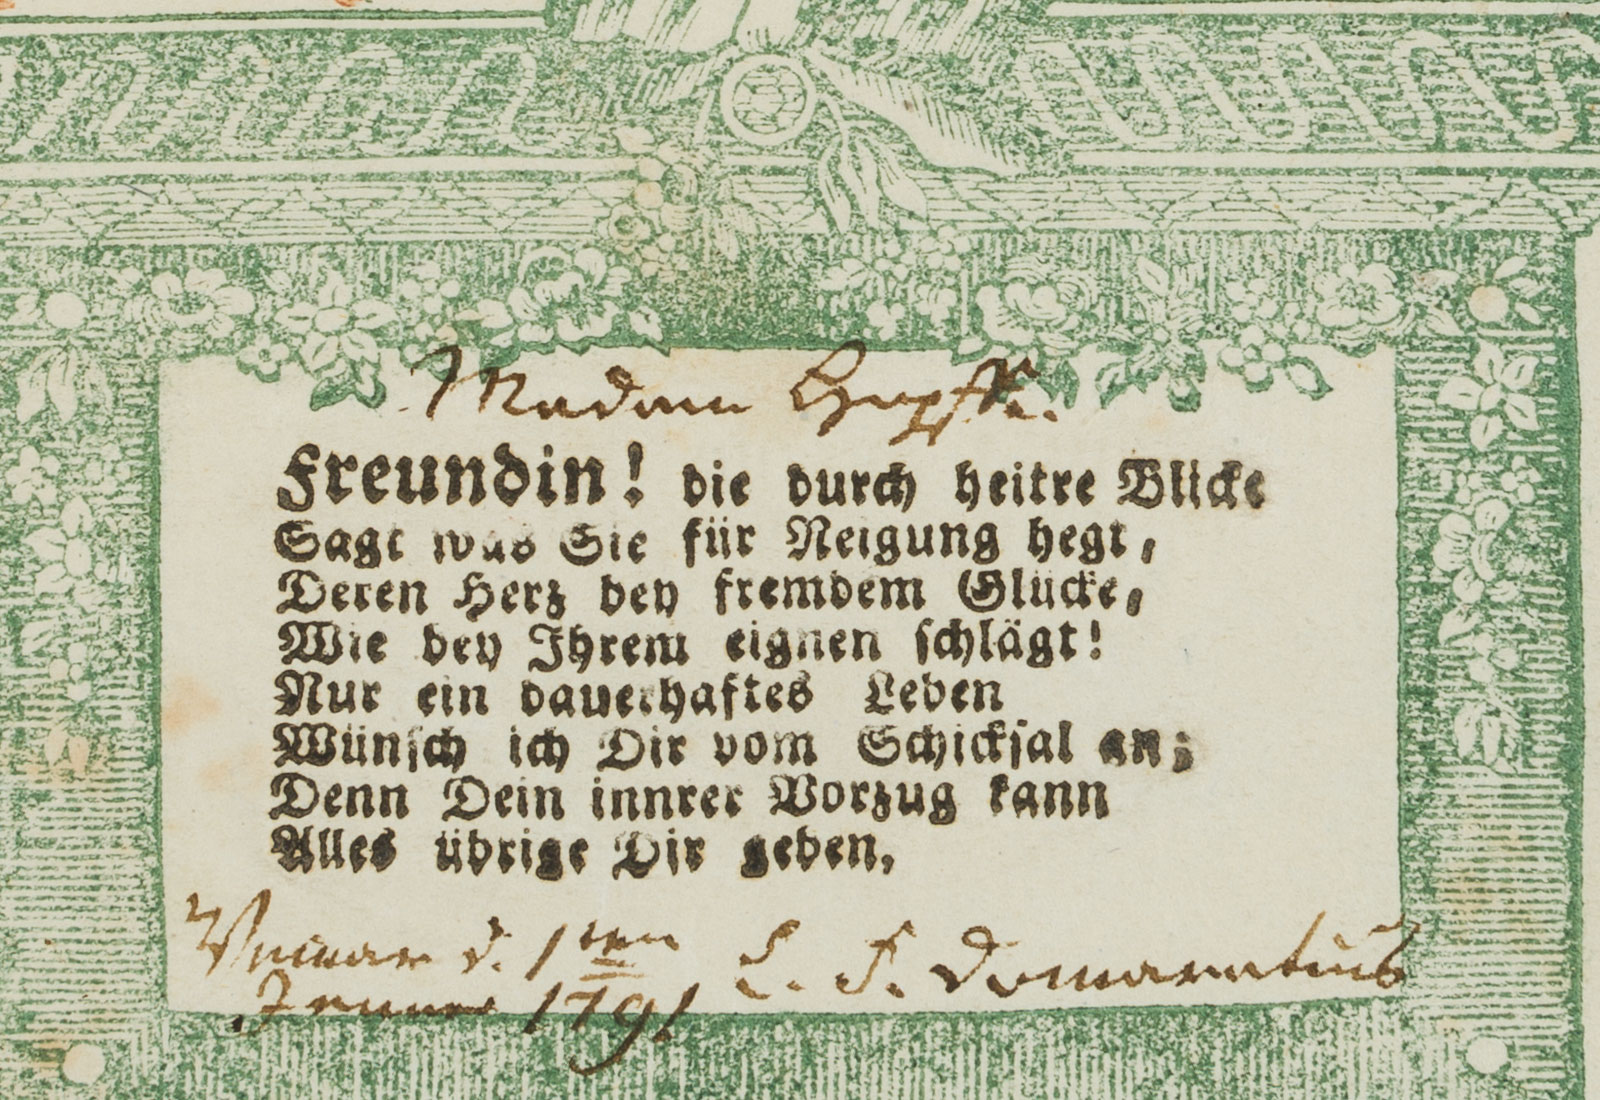 Madam Hepffe.
Freundin! die durch heitre Blicke
Sagt was Sie für Neigung hegt,
Deren Herz bey fremdem Glücke,
Wie bey Ihrem eignen schlägt!
Nur ein dauerhaftes Leben
Wünsch ich Dir vom Schicksal an;
Denn Dein innrer Vorzug kann
Alles übrige Dir geben.
Weimar d. 1ten
Januar 1791
C. F. Domaratius